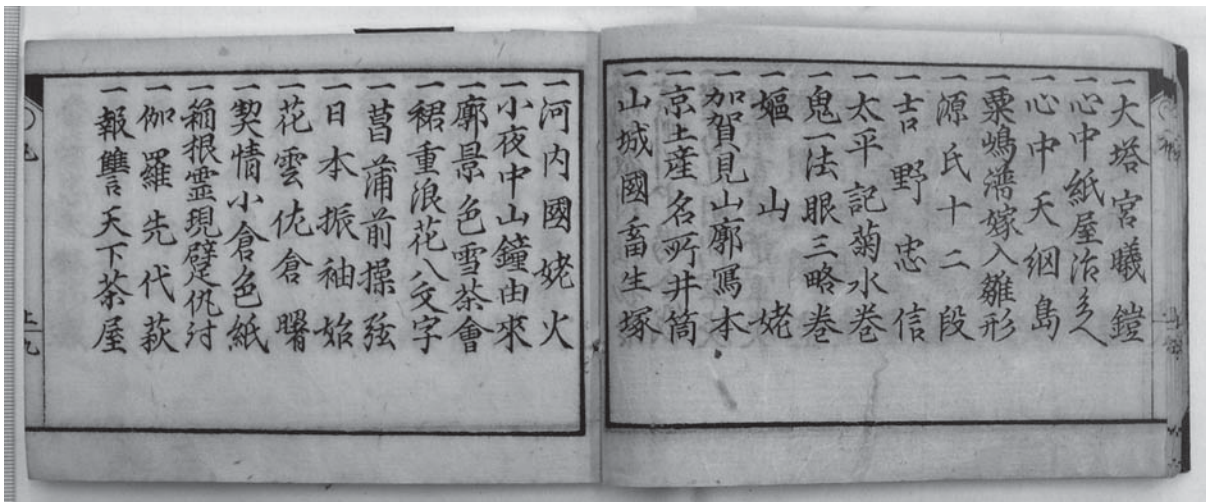 一大塔宮曦鎧
一心中紙屋治兵ヱ
一心中天綱島
一粟嶋濳嫁入雛形
一源氏十二段
一吉野忠信
一太平記菊水巻
一鬼一法眼三略巻
一嫗山姥
一加賀見山廓冩本
一京土産名所井筒
一山城國畜生塚
一河内國姥火
一小夜中山鐘由來
一廓景色雪茶會
一裙重浪花八文字
一菖蒲前操弦
一日本振袖始
一花雲佐倉曙
一契情小倉色紙
一箱根霊現躄仇討
一伽羅先代萩
一報讐天下茶屋
上九